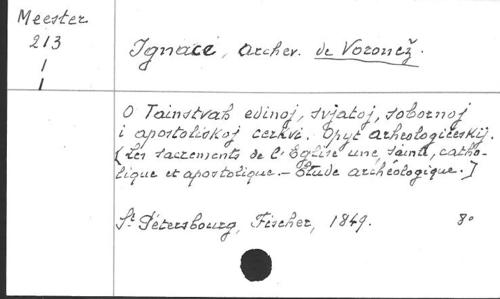 Meester
213
1
1
Ignace, archev. de Voronež.
O Tainstvah edinoj, svjatoj, sobornoj
i apostoliskoj cerkvi. Opyt arheologičeskij.
[Les sacrements de l'Eglise une, sainte, catho-
lique et apostolique. - Etude archéologique.]
St Pétersbourg, Fischer, 1849. 8°